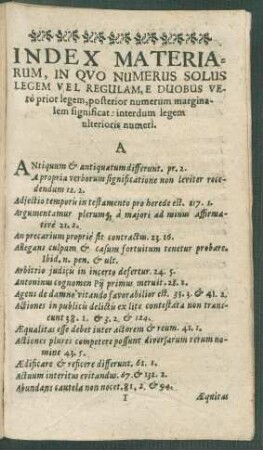 INDEX MATERIA-
RUM, IN QVO NUMERUS SOLUS
LEGEM VEL REGULAM, E DUOBUS VE-
rò prior legem, posterior numerum margina-
lem significat: interdum legem
ulterioris numeri.
A
ANtiquum & antiquatum differunt. pr. 2.
A propria verborum significatione non leviter rece-
dendum 12. 2.
Adjectio temporis in testamento pro herede est. 117. 1.
Argumentamur plerumq; à majori ad minus affirma-
tivè 21. 2.
An precarium propriè sit contractus. 23. 16.
Allegans culpam & casum fortuitum tenetur probare.
Ibid. n. pen. & ult.
Arbitrio judicis in incerto defertur. 24. 5.
Antoninus cognomen Pij primus meruit. 28. 2.
Agens de damno vitando favorabilior est. 33. 3. & 41. 2.
Actiones in publicis delictis ex lite contestata non trans-
eunt 38. 1. & 3. 2. & 124.
Æqualitas esse debet inter actorem & reum. 41. 1.
Actiones plures competere possunt diversarum rerum no-
mine 43. 5.
Ædificare & reficere differunt. 61. 1.
Actuum interitus evitandus. 67. & 132. 2.
Abundans cautela non nocet. 81, 2. & 94.
I Æquitas